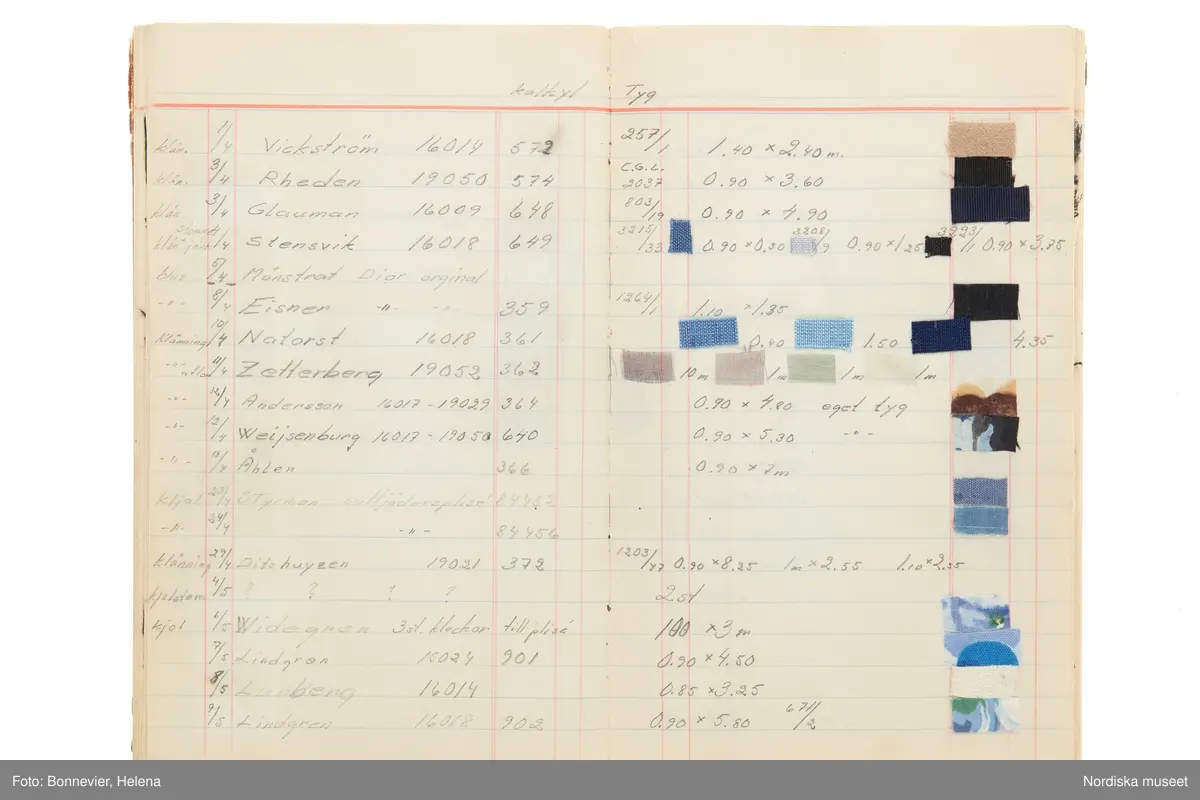 kalkyl Tyg
klän. 1/4 Vickström 16014 572 257/1 1.40 × 2.40 m.
klän. 3/4 Rheden 19050 574 C.G.L. 2037 0.90 × 3.60
klän 3/4 Glauman 16009 648 803/19 0.90 × 4.90
/4 Stensvik 16018 649 3215/33 0.90 × 0.30 3208/9 0.90 × 1.25 3293/1 0.90 × 3.75
blus 5/4 Mönstrat Dior orginal
-"- 8/4 Eisner -"- -"- 359 1264/1 1.10 × 1.35
klänning 10/4 Natorst 16018 361 0.40 1.50 4.35
-"- 11/4 Zetterberg 19052 362 10 m 1m 1m 1m
-"- 12/4 Andersson 16017 - 19029 364 0.90 × 4.80 eget tyg
-"- 12/4 Weijsenburg 16017 - 19050 640 0.90 × 5.30 -"-
-"- 18/4 Åhlen 366 0.90 × 7m
kjol 20/4 Styrman 84452
-"- 24/4 -"- 84456
klänning 29/4 Ditzhuyzen 19021 372 1203/47 0.90 × 8.25 1m × 2.55 1.10 ×
4/5 ? ? ? ? 2st
kjol 6/5 Widegren 3st. klockor till plisé 100 × 3 m
7/5 Lindgren 15024 901 0.90 × 4.50
8/5 Lunberg 16014 0.85 × 3.25
9/5 Lindgren 16018 902 0.90 × 5.80 671/2
Foto: Bonnevier, Helena
Nordiska museet